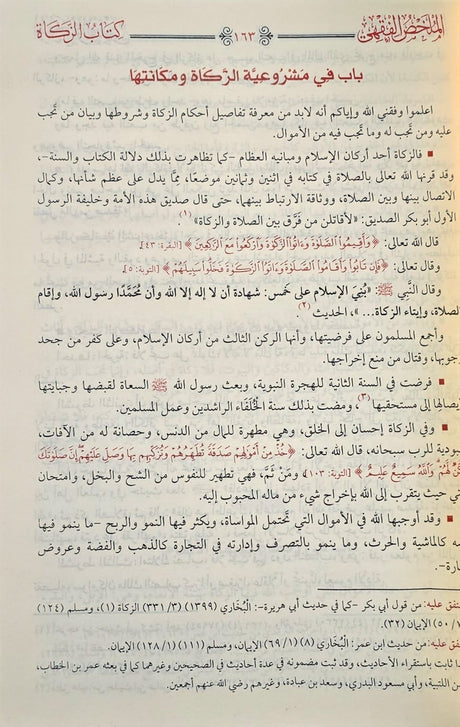 الملخص الفقهي ١٦٣ كتاب الزكاة
باب في مشروعية الزكاة ومكانتها
اعلموا وفقني الله وإياكم أنه لابد من معرفة تفاصيل أحكام الزكاة وشروطها وبيان من تجب
عليه ومن تجب له وما تجب فيه من الأموال.
▪ فالزكاة أحد أركان الإسلام ومبانيه العظام -كما تظاهرت بذلك دلالة الكتاب والسنة-،
وقد قرنها الله تعالى بالصلاة في كتابه في اثنين وثمانين موضعًا، مِمَّا يدل على عظم شأنها، وكمال
الاتصال بينها وبين الصلاة، ووثاقة الارتباط بينهما، حتى قال صديق هذه الأمة وخليفة الرسول
الأول أبو بكر الصديق: «لأقاتلن من فَرَّق بين الصلاة والزكاة» (١)
قال الله تعالى: ﴿وَأَقِيمُوا الصَّلَوٰةَ وَءَاتُوا الزَّكَوٰةَ وَارْكَعُوا مَعَ الرَّٰكِعِينَ﴾ [البقرة: ٤٣].
وقال تعالى: ﴿فَإِن تَابُوا وَأَقَامُوا الصَّلَوٰةَ وَءَاتَوُا الزَّكَوٰةَ فَخَلُّوا سَبِيلَهُمْ﴾ [التوبة: ٥].
وقال النَّبِي ﷺ: «بُنِيَ الإسلام على خَمس: شهادة أن لا إله إلا الله وأن مُحَمَّدًا رسول الله، وإقام
الصلاة، وإيتاء الزكاة...»، الحديث (٢)
وأجمع المسلمون على فرضيتها، وأنها الركن الثالث من أركان الإسلام، وعلى كفر من جحد
وجوبها، وقتال من منع إخراجها.
▪ فرضت في السنة الثانية للهجرة النبوية، وبعث رسول الله ﷺ السعاة لقبضها وجبايتها
إيصالها إلى مستحقيها (٣)، ومضت بذلك سنة الخُلَفَاء الراشدين وعمل المسلمين.
▪ وفي الزكاة إحسان إلى الخلق، وهي مطهرة للمال من الدنس، وحصانة له من الآفات،
بودية للرب سبحانه، قال الله تعالى: ﴿خُذْ مِنْ أَمْوَٰلِهِمْ صَدَقَةً تُطَهِّرُهُمْ وَتُزَكِّيهِم بِهَا وَصَلِّ عَلَيْهِمْ إِنَّ صَلَوٰتَكَ
نٌ لَّهُمْ وَاللَّهُ سَمِيعٌ عَلِيمٌ﴾ [التوبة: ١٠٣] ومَنْ ثَمَّ، فهي تطهير للنفوس من الشح والبخل، وامتحان
ني حيث يتقرب إلى الله بإخراج شيء من ماله المحبوب إليه.
▪ وقد أوجبها الله في الأموال التي تَحتمل المواساة، ويكثر فيها النمو والربح -ما ينمو فيها
سه كالماشية والحرث، وما ينمو بالتصرف وإدارته في التجارة كالذهب والفضة وعروض
ارة-.
تفق عليه: من قول أبي بكر -كما في حديث أبي هريرة-: الْبُخَاري (١٣٩٩) (٣/ ٣٣١) الزكاة (١)، ومسلم (١٢٤)
٥٠/٧) الإيمان (٣٢).
فق عليه: من حديث ابن عمر: الْبُخَاري (٨) (١/ ٦٩) الإيمان، ومسلم (١١١) (١/ ١٢٨) الإيمان.
ا ثابت باستقراء الأحاديث، وقد ثبت مضمونه في عدة أحاديث في الصحيحين وغيرهما كما في بعثه عمر بن الخطاب،
ن اللتبية، وأبي مسعود البدري، وسعد بن عبادة، وغيرهم رضي الله عنهم أجمعين.